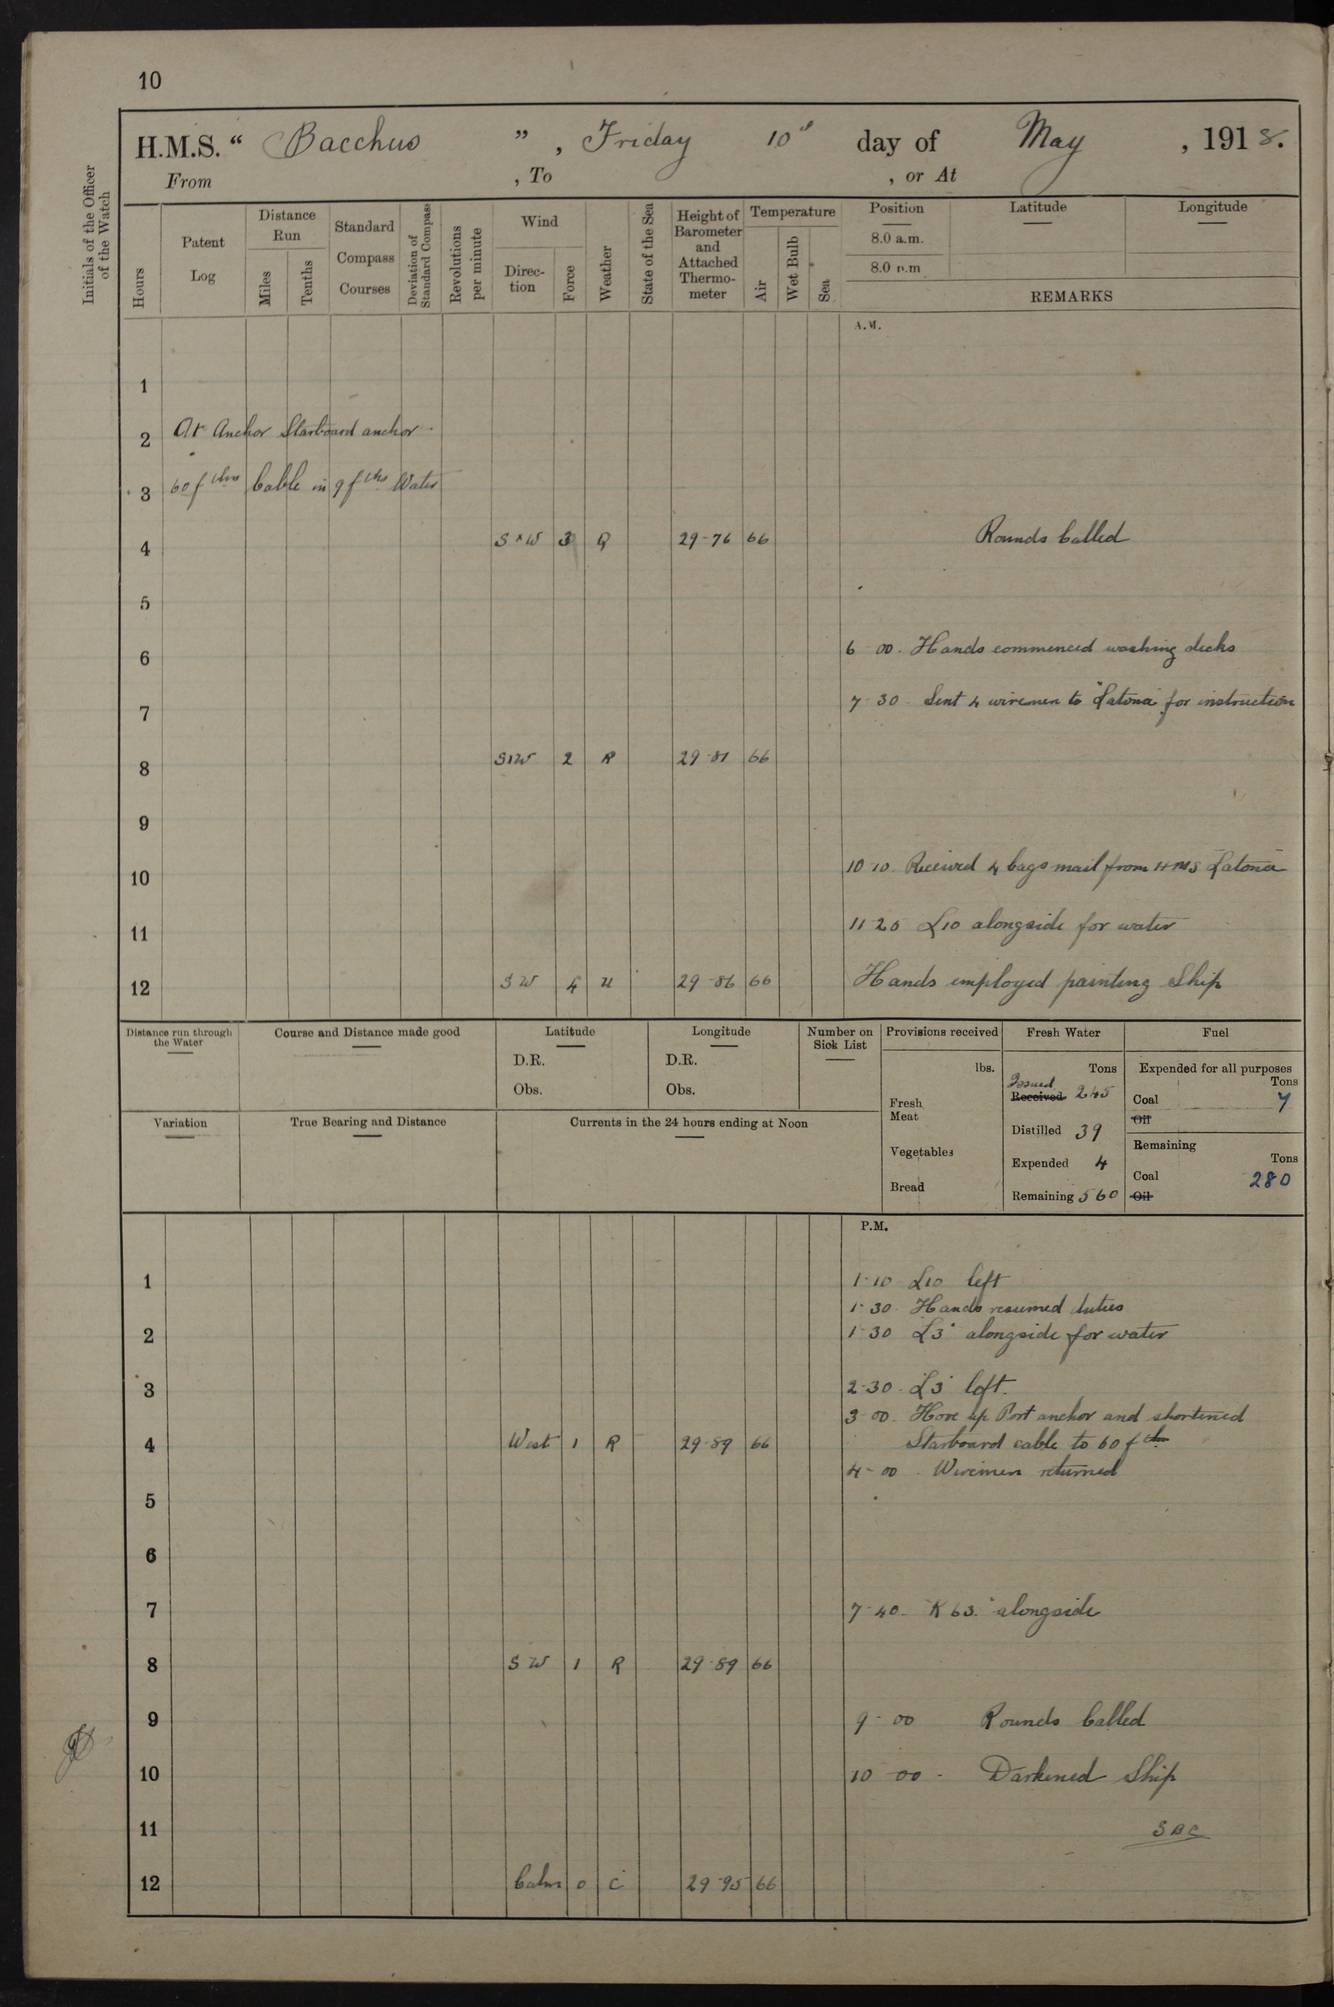 10
H.M.S. “ Bacchus ” , Friday 10th day of May , 1918.
From , To , or At
Initials of the Officer of the Watch
Hours
Patent Log
Distance Run
Miles
Tenths
Standard Compass Courses
Deviation of Standard Compass
Revolutions per minute
Wind
Direction
Force
Weather
State of the Sea
Height of Barometer and Attached Thermometer
Temperature
Air
Wet Bulb
Sea
Position
8.0 a.m.
8.0 p.m
Latitude
Longitude
REMARKS
A.M.
1
2 At Anchor Starboard anchor
3 60 fthms Cable in 9 fths Water
4 S x W 3 Q 29-76 66 Rounds Called
5
6 6 00. Hands commenced washing decks
7 7 30 Sent 4 wiremen to "Latona" for instruction
8 S x W 2 R 29-81 66
9
10 10 10. Received 4 bags mail from HMS Latona
11 11 20 L10 alongside for water
12 SW 4 U 29-86 66 Hands employed painting Ship
Distance run through the Water
Course and Distance made good
Latitude
D.R.
Obs.
Longitude
D.R.
Obs.
Number on Sick List
Provisions received
lbs.
Fresh Meat
Vegetables
Bread
Fresh Water
Tons
Issued
Received 245
Distilled 39
Expended 4
Remaining 560
Fuel
Expended for all purposes
Tons
Coal 7
Oil
Remaining
Tons
Coal 280
Oil
Variation
True Bearing and Distance
Currents in the 24 hours ending at Noon
P.M.
1 1-10 L10 left
1-30 Hands resumed duties
2 1-30 L3 alongside for water
3 2-30. L3 left.
3-00. Hove up Port anchor and shortened
4 West 1 R 29-89 66 Starboard cable to 60 fth
4-00. Wiremen returned
5
6
7 7-40. "K 63." alongside
8 SW 1 R 29-89 66
9 9-00 Rounds Called
10 10 00 - Darkened Ship
11 SBC
12 Calm 0 C 29-95 66